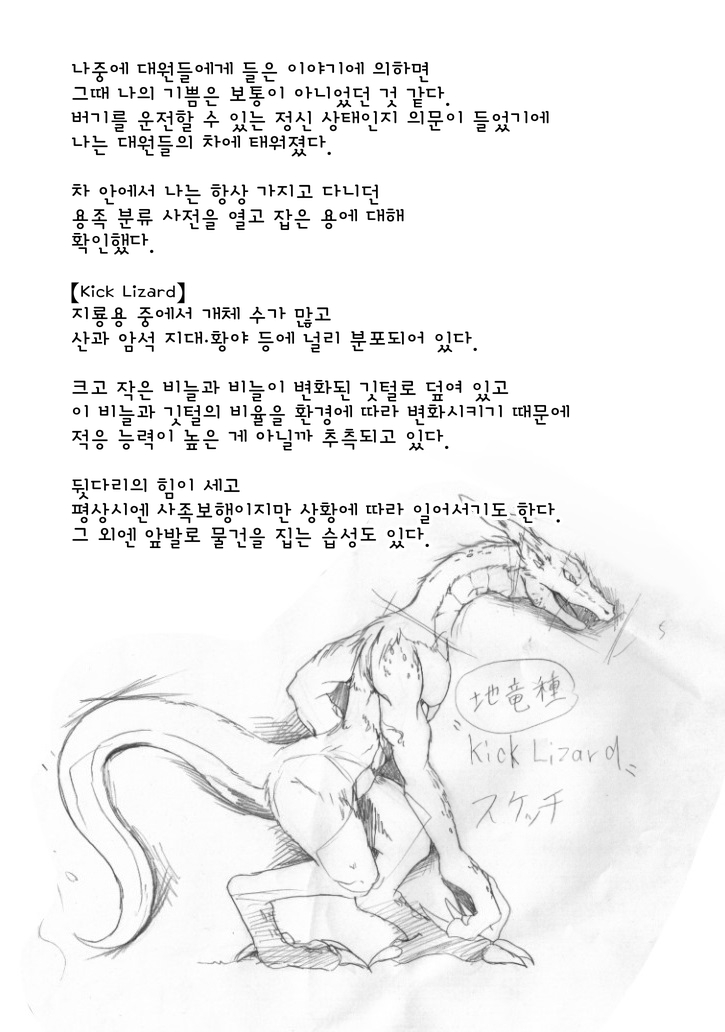 나중에 대원들에게 들은 이야기에 의하면
그때 나의 기쁨은 보통이 아니었던 것 같다.
버기를 운전할 수 있는 정신 상태인지 의문이 들었기에
나는 대원들의 차에 태워졌다.
차 안에서 나는 항상 가지고 다니던
용족 분류 사전을 열고 잡은 용에 대해
확인했다.
【Kick Lizard】
지룡용 중에서 개체 수가 많고
산과 암석 지대·황야 등에 널리 분포되어 있다.
크고 작은 비늘과 비늘이 변화된 깃털로 덮여 있고
이 비늘과 깃털의 비율을 환경에 따라 변화시키기 때문에
적응 능력이 높은 게 아닐까 추측되고 있다.
뒷다리의 힘이 세고
평상시엔 사족보행이지만 상황에 따라 일어서기도 한다.
그 외엔 앞발로 물건을 집는 습성도 있다.
地竜種
"Kick Lizard"
スケッチ